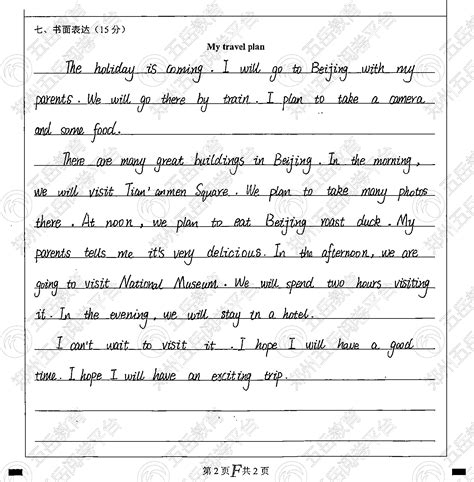 七、书面表达（15 分）
My travel plan
The holiday is coming. I will go to Beijing with my
parents. We will go there by train. I plan to take a camera
and some food.
There are many great buildings in Beijing. In the morning,
we will visit Tian'anmen Square. We plan to take many photos
there. At noon, we plan to eat Beijing roast duck. My
parents tells me it's very delicious. In the afternoon, we are
going to visit National Museum. We will spend two hours visiting
it. In the evening, we will stay in a hotel.
I can't wait to visit it. I hope I will have a good
time. I hope I will have an exciting trip.
第 2 页 F 共 2 页